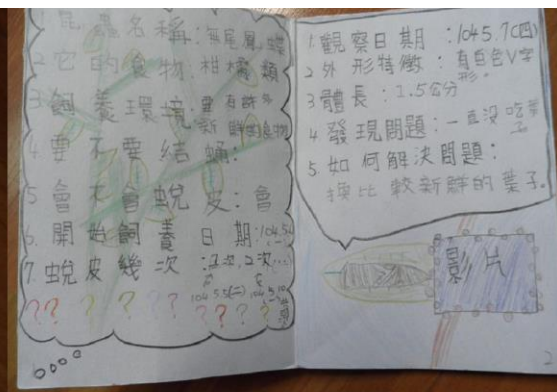 1. 昆蟲名稱:無尾鳳蝶
2 它的食物:柑橘類
3. 飼養環境:要有
新鮮的食物
4 要不要結蛹:
5 會不會蛻皮:會
6. 開始飼養日期:104.5.
7. 蛻皮幾次:1次,2次
104.5.5(二)
?? ? ? ?? ? ? ? ?
1. 觀察日期:104 5.7(四)
2 外形特徵:有白色V字
形。
3 體長:1.5公分
4 發現問題:一直沒吃葉
子
5. 如何解決問題:
換比較新群的葉子。
影片
2